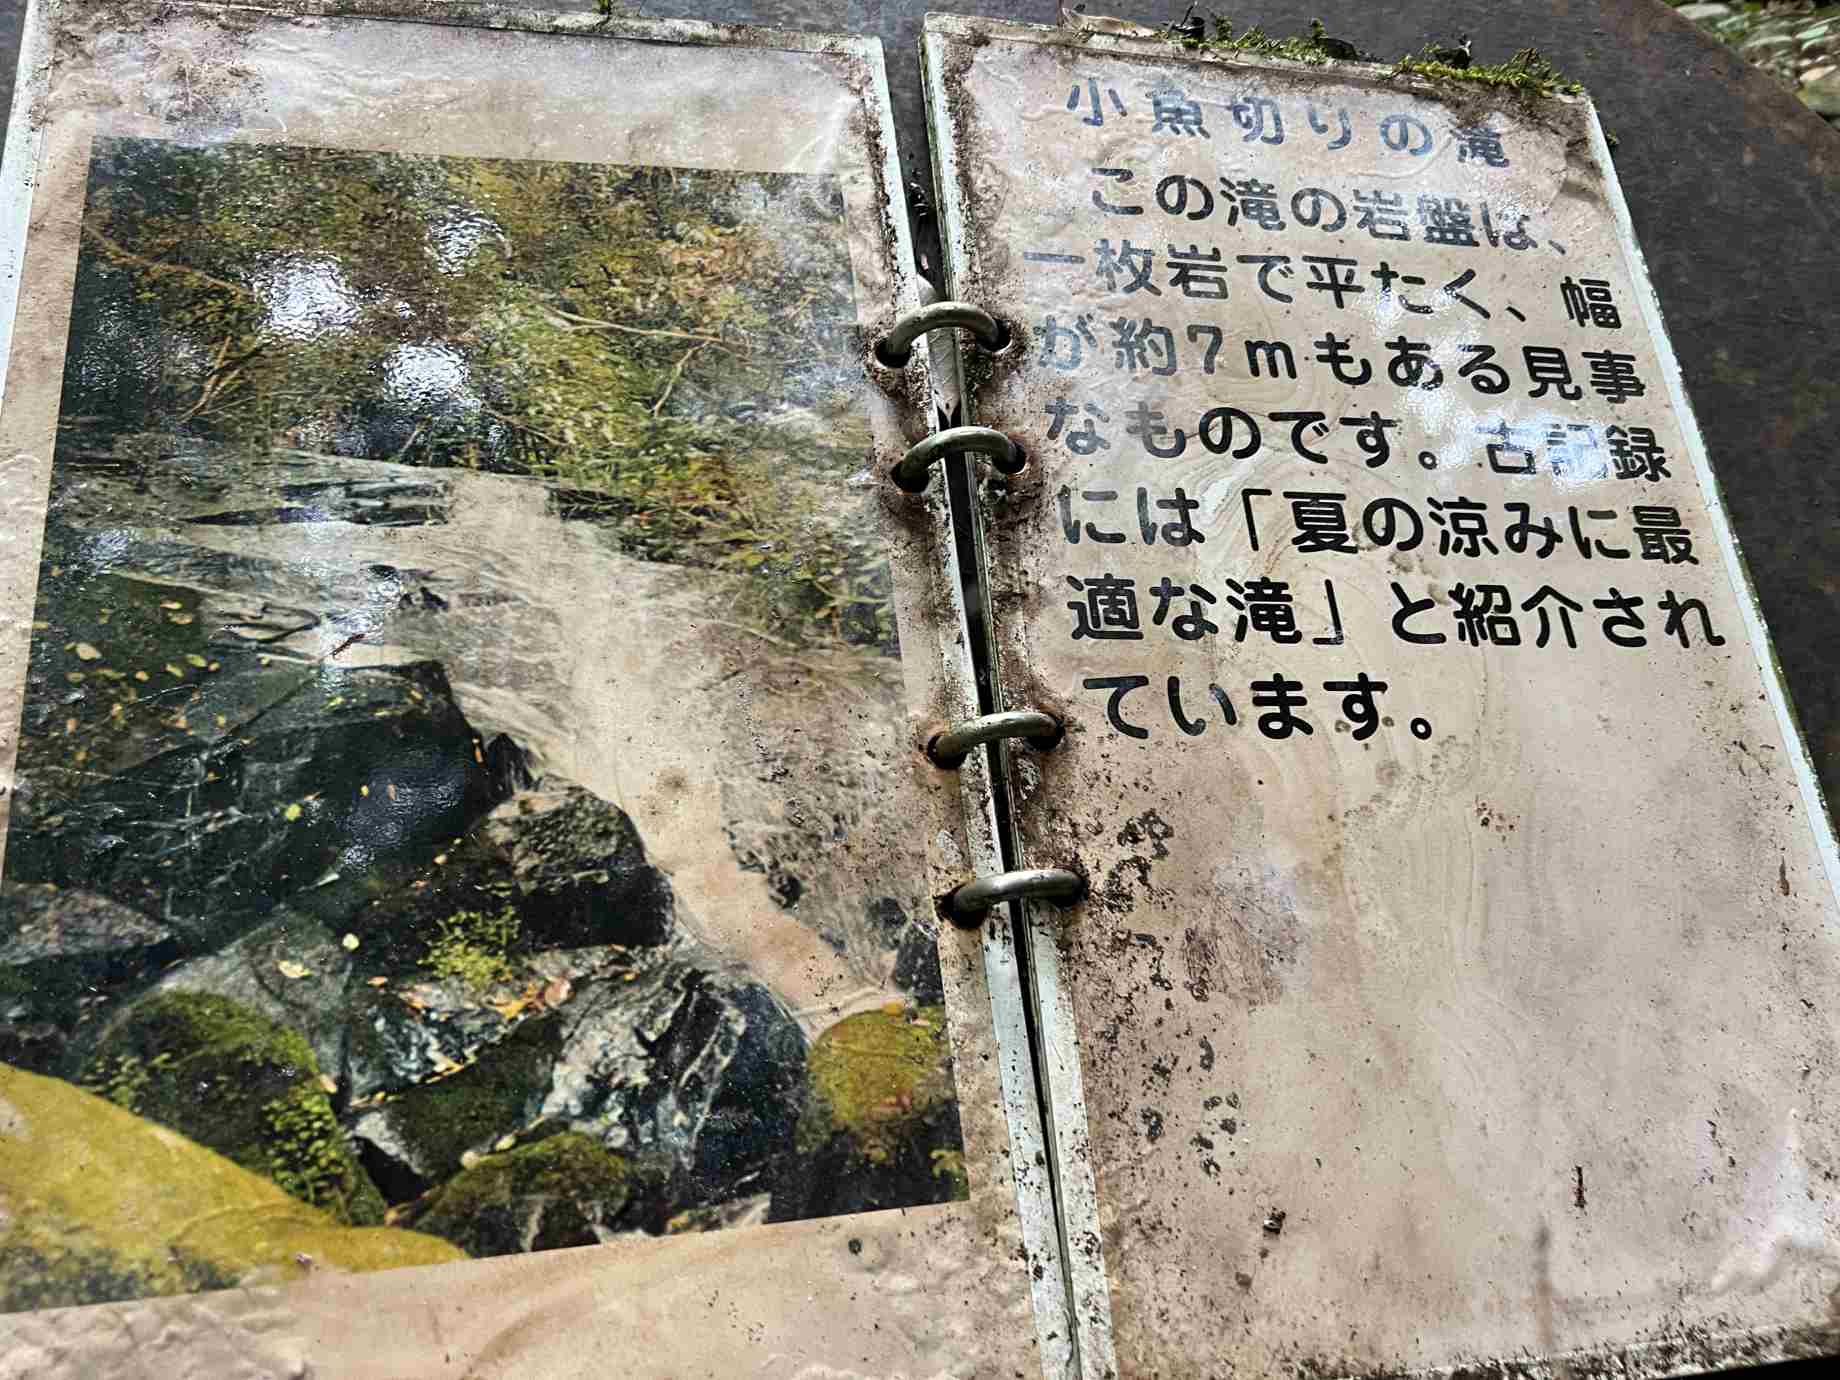 小魚切りの滝
この滝の岩盤は、
一枚岩で平たく、幅
が約7mもある見事
なものです。古記録
には「夏の涼みに最
適な滝」と紹介され
ています。